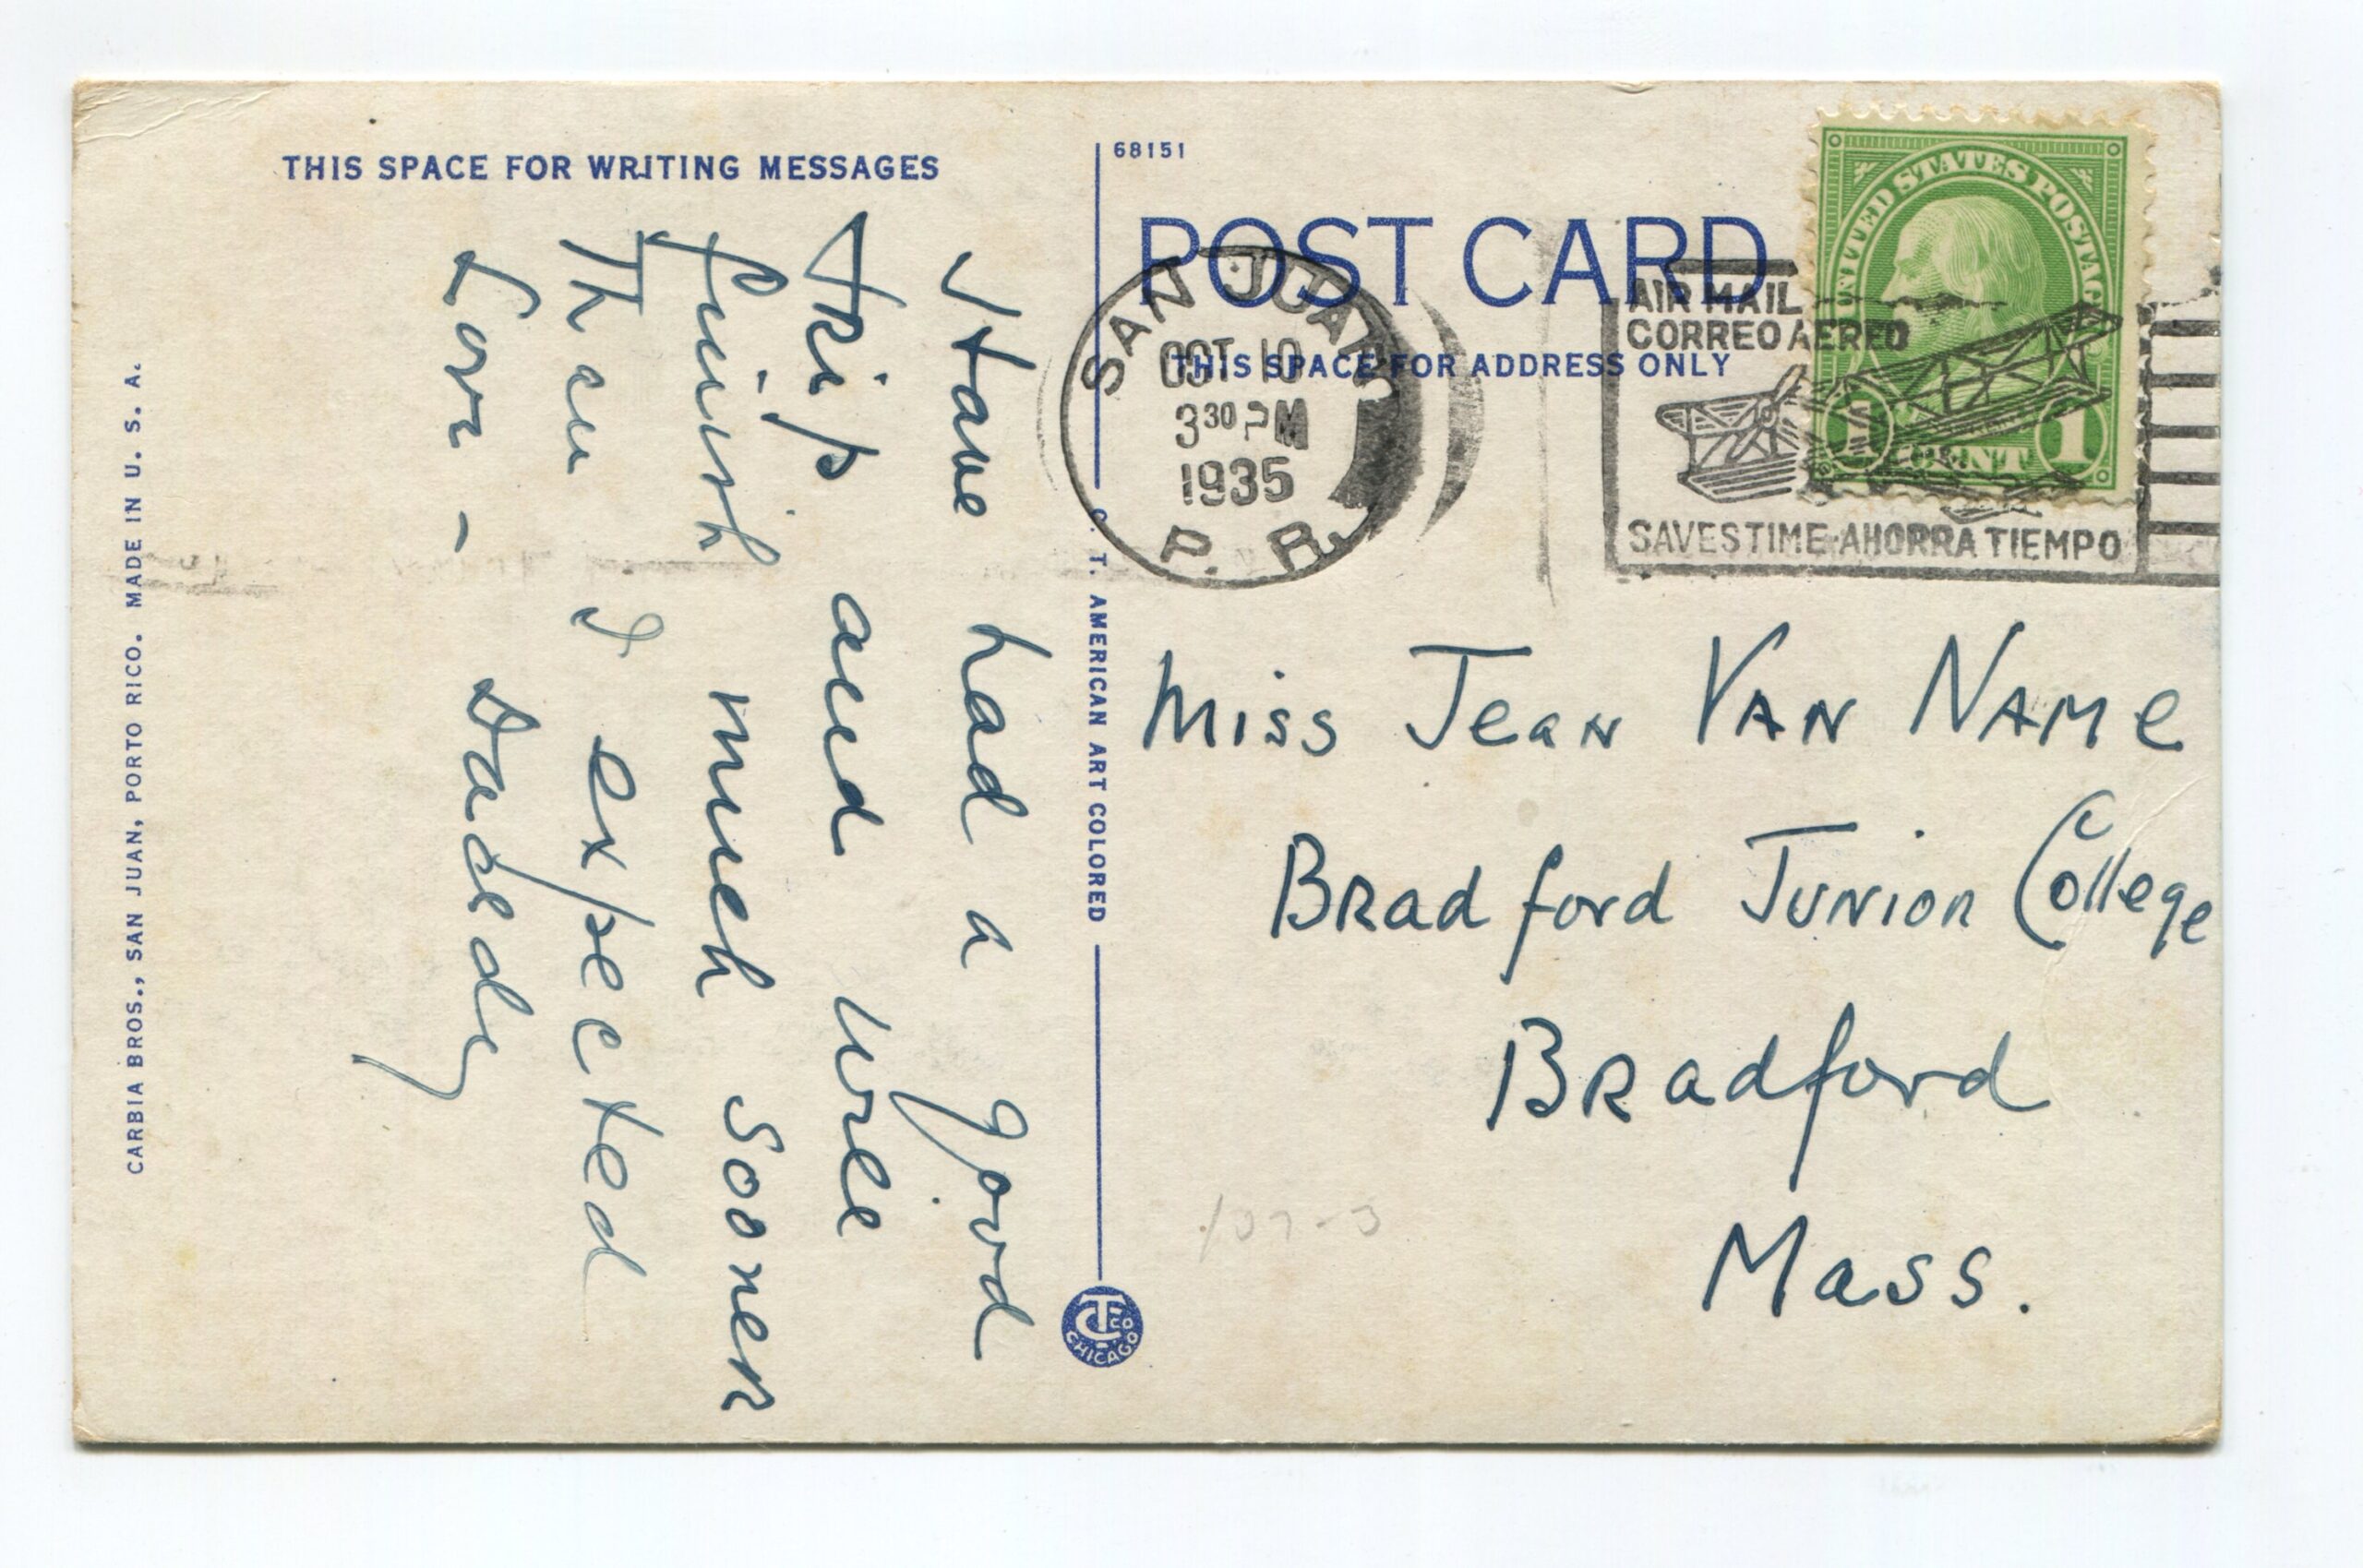 THIS SPACE FOR WRITING MESSAGES
Have had a good
trip and will
finish much sooner
Than I expected
Love - Daddy
CARBIA BROS., SAN JUAN, PORTO RICO. MADE IN U. S. A.
C. T. AMERICAN ART COLORED
C T CO
CHICAGO
68151
POST CARD
THIS SPACE FOR ADDRESS ONLY
SAN JUAN
OCT 10
3 30 PM
1935
P. R.
AIR MAIL
CORREO AEREO
SAVES TIME-AHORRA TIEMPO
UNITED STATES POSTAGE
1 CENT 1
Miss Jean VAN NAMe
BRadford JUNioR College
BRadford
Mass.